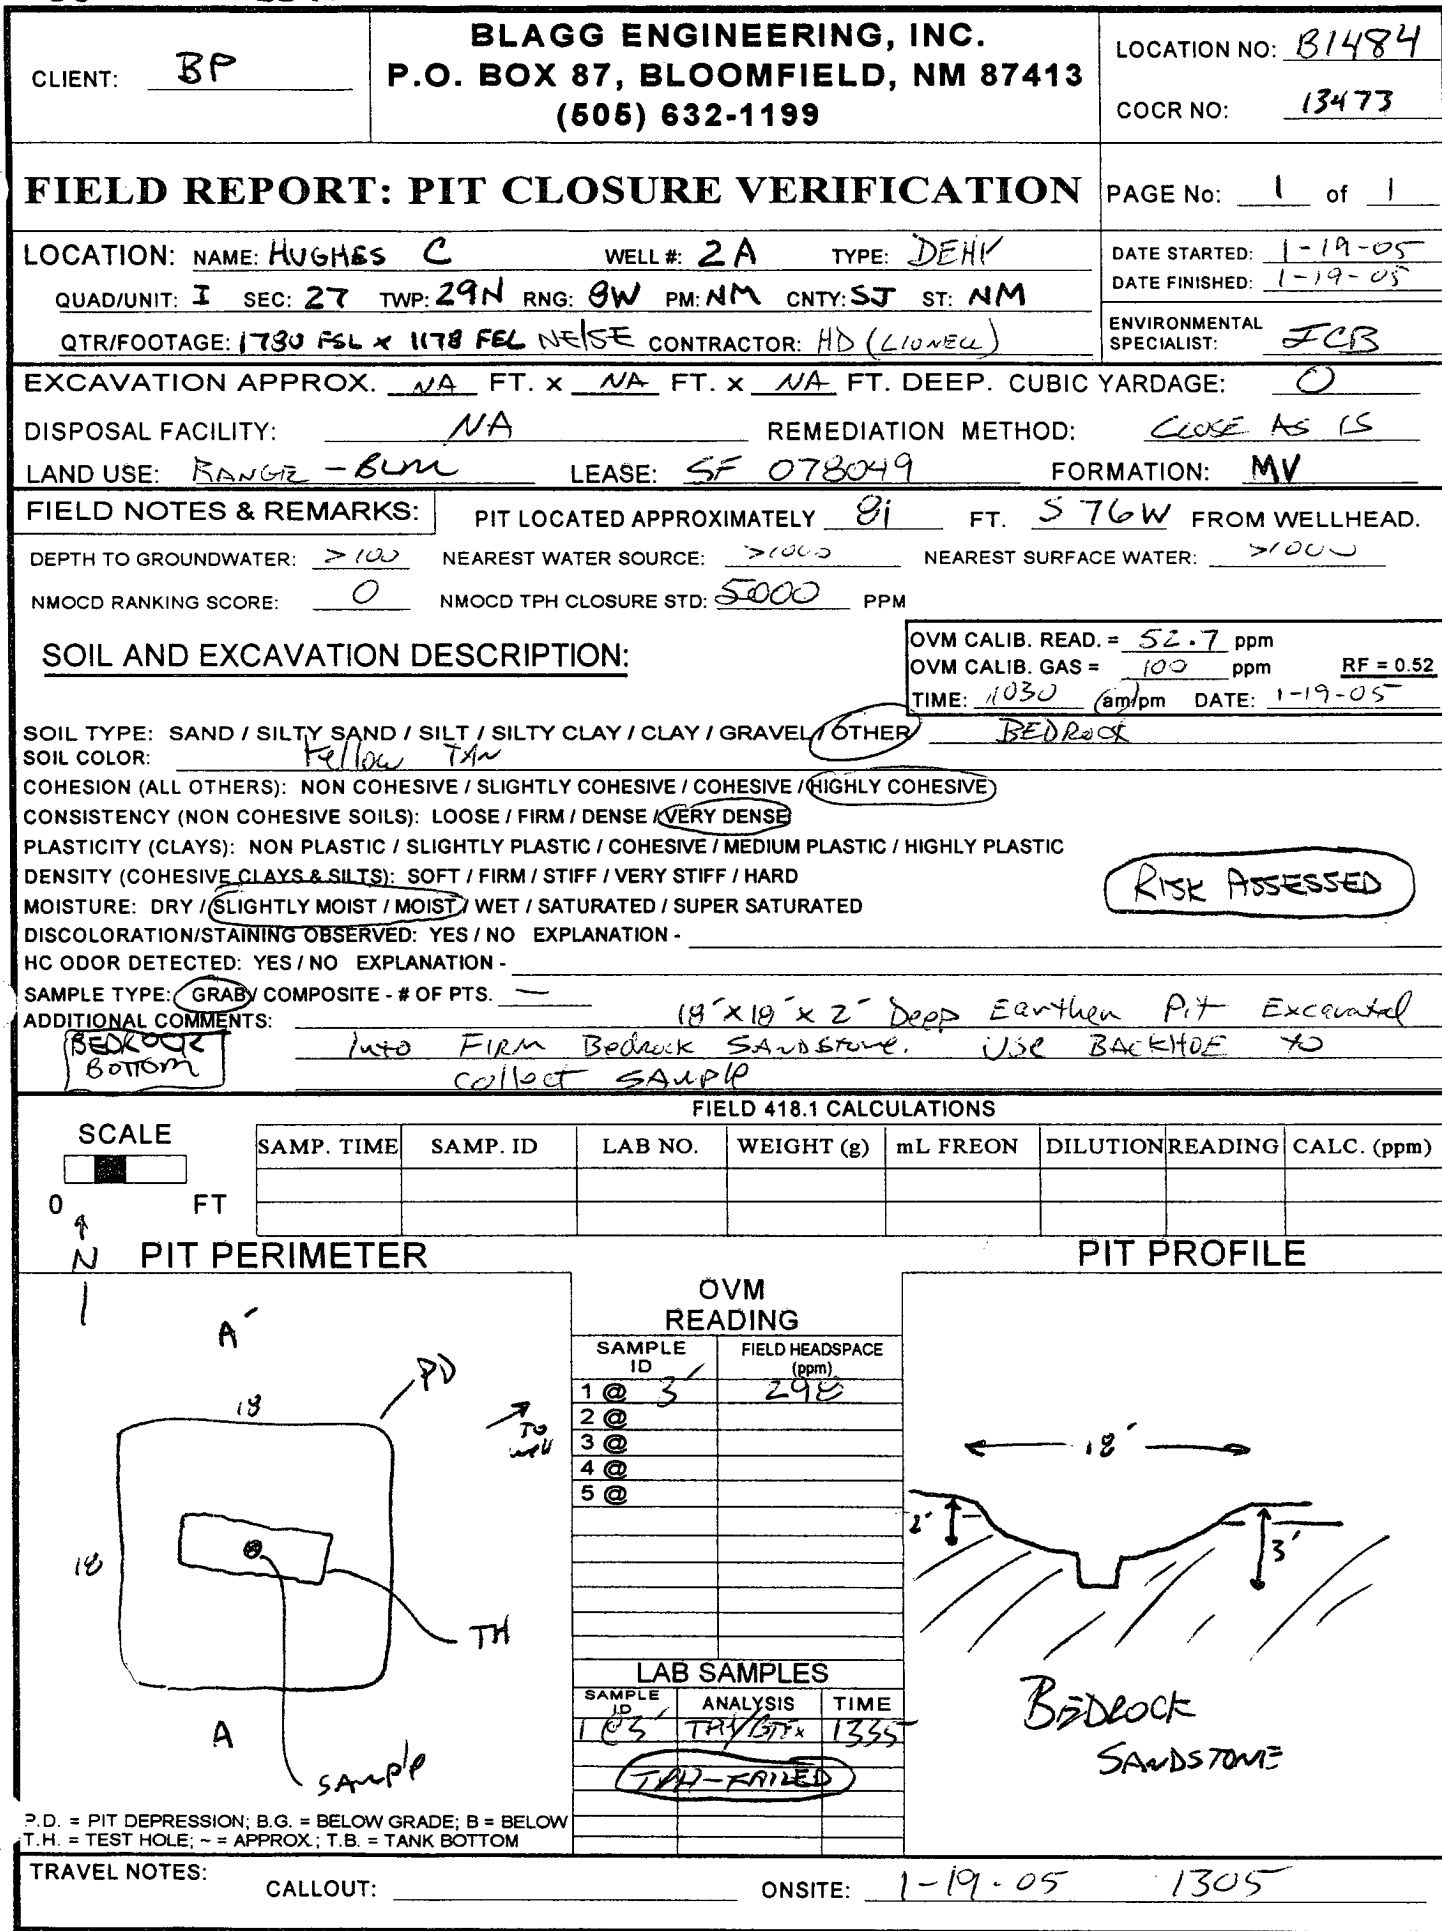 BLAGG ENGINEERING, INC.
P.O. BOX 87, BLOOMFIELD, NM 87413
(505) 632-1199
CLIENT: BP
LOCATION NO: B1484
COCR NO: 13473
FIELD REPORT: PIT CLOSURE VERIFICATION
PAGE No: 1 of 1
LOCATION: NAME: HUGHES C WELL #: 2A TYPE: DEHY
QUAD/UNIT: I SEC: 27 TWP: 29N RNG: 8W PM: NM CNTY: SJ ST: NM
QTR/FOOTAGE: 1780 FSL x 1178 FEL NE/SE CONTRACTOR: HD (LIONELL)
DATE STARTED: 1-19-05
DATE FINISHED: 1-19-05
ENVIRONMENTAL
SPECIALIST: JCB
EXCAVATION APPROX. NA FT. x NA FT. x NA FT. DEEP. CUBIC YARDAGE: 0
DISPOSAL FACILITY: NA REMEDIATION METHOD: CLOSE AS IS
LAND USE: RANGE - BLM LEASE: SF 078049 FORMATION: MV
FIELD NOTES & REMARKS: PIT LOCATED APPROXIMATELY 81 FT. S76W FROM WELLHEAD.
DEPTH TO GROUNDWATER: >100 NEAREST WATER SOURCE: >1000 NEAREST SURFACE WATER: >1000
NMOCD RANKING SCORE: 0 NMOCD TPH CLOSURE STD: 5000 PPM
SOIL AND EXCAVATION DESCRIPTION:
OVM CALIB. READ. = 52.7 ppm
OVM CALIB. GAS = 100 ppm RF = 0.52
TIME: 1030 am/pm DATE: 1-19-05
SOIL TYPE: SAND / SILTY SAND / SILT / SILTY CLAY / CLAY / GRAVEL / OTHER BEDROCK
SOIL COLOR: Yellow TAN
COHESION (ALL OTHERS): NON COHESIVE / SLIGHTLY COHESIVE / COHESIVE / HIGHLY COHESIVE
CONSISTENCY (NON COHESIVE SOILS): LOOSE / FIRM / DENSE / VERY DENSE
PLASTICITY (CLAYS): NON PLASTIC / SLIGHTLY PLASTIC / COHESIVE / MEDIUM PLASTIC / HIGHLY PLASTIC
DENSITY (COHESIVE CLAYS & SILTS): SOFT / FIRM / STIFF / VERY STIFF / HARD
RISK ASSESSED
MOISTURE: DRY / SLIGHTLY MOIST / MOIST / WET / SATURATED / SUPER SATURATED
DISCOLORATION/STAINING OBSERVED: YES / NO EXPLANATION -
HC ODOR DETECTED: YES / NO EXPLANATION -
SAMPLE TYPE: GRAB / COMPOSITE - # OF PTS. —
ADDITIONAL COMMENTS: 18' x 18' x 2' Deep Earthen Pit Excavated
Into FIRM Bedrock SANDSTONE. USE BACKHOE TO
collect SAMPLE
BEDROCK
BOTTOM
FIELD 418.1 CALCULATIONS
SCALE
0 FT
SAMP. TIME SAMP. ID LAB NO. WEIGHT (g) mL FREON DILUTION READING CALC. (ppm)
N
PIT PERIMETER
PIT PROFILE
A'
PD
18
To well
18
TH
A
SAMPLE
OVM
READING
SAMPLE ID FIELD HEADSPACE (ppm)
1 @ 3' 298
2 @
3 @
4 @
5 @
LAB SAMPLES
SAMPLE ID ANALYSIS TIME
1@3' TPH/BTEX 1335
TPH-FAILED
18'
2'
3'
BEDROCK
SANDSTONE
P.D. = PIT DEPRESSION; B.G. = BELOW GRADE; B = BELOW
T.H. = TEST HOLE; ~ = APPROX.; T.B. = TANK BOTTOM
TRAVEL NOTES:
CALLOUT: ONSITE: 1-19-05 1305